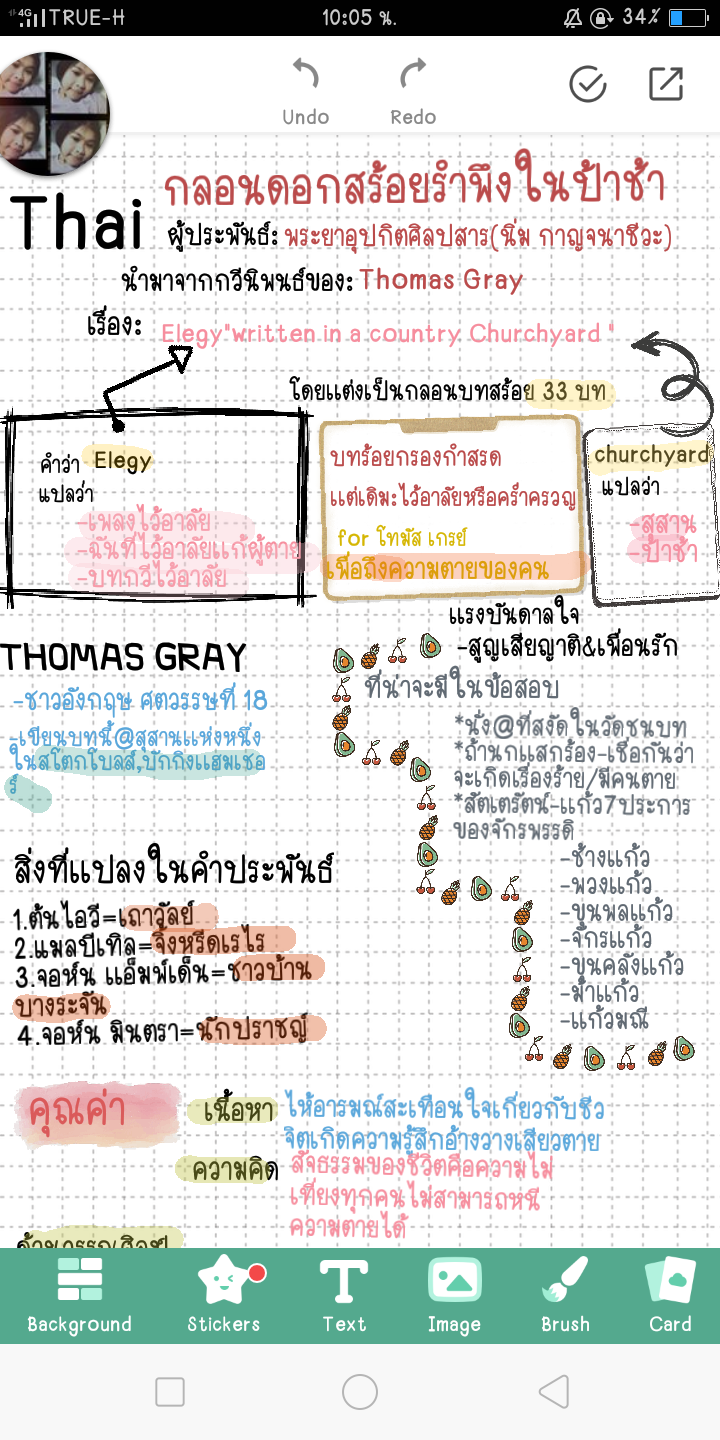 4G TRUE-H 10:05 น. 34%
Undo
Redo
Thai
กลอนดอกสร้อยรำพึงในป่าช้า
ผู้ประพันธ์: พระยาอุปกิตศิลปสาร(นิ่ม กาญจนาชีวะ)
นำมาจากกวีนิพนธ์ของ: Thomas Gray
เรื่อง: Elegy"written in a country Churchyard "
โดยแต่งเป็นกลอนบทสร้อย 33 บท
คำว่า Elegy
แปลว่า
-เพลงไว้อาลัย
-ฉันท์ไว้อาลัยแก้ผู้ตาย
-บทกวีไว้อาลัย
บทร้อยกรองกำสรด
แต่เดิมะไว้อาลัยหรือคร่ำครวญ
for โทมัส เกรย์
เพื่อถึงความตายของคน
churchyard
แปลว่า
-สุสาน
-ป่าช้า
แรงบันดาลใจ
-สูญเสียญาติ&เพื่อนรัก
THOMAS GRAY
-ชาวอังกฤษ ศตวรรษที่ 18
-เขียนบทนี้@สุสานแห่งหนึ่ง
ในสโตกโบลส์,บักกิงแฮมเชอ
ร์
ที่น่าจะมีในข้อสอบ
*นั่ง@ที่สงัดในวัดชนบท
*ถ้านกแสกร้อง-เชื่อกันว่า
จะเกิดเรื่องร้าย/มีคนตาย
*สัตเตรัตน์-แก้ว7ประการ
ของจักรพรรดิ
-ช้างแก้ว
-พวงแก้ว
-ขุนพลแก้ว
-จักรแก้ว
-ขุนคลังแก้ว
-ม้าแก้ว
-แก้วมณี
สิ่งที่แปลงในคำประพันธ์
1.ต้นไอวี=เถาวัลย์
2.แมลปีเทิล=จิ้งหรีดเรไร
3.จอห์น แอ็มพ์เด็น=ชาวบ้าน
บางระจัน
4.จอห์น มินตรา=นักปราชญ์
คุณค่า
เนื้อหา ให้อารมณ์สะเทือนใจเกี่ยวกับชีว
จิตเกิดความรู้สึกอ้างวางเสียวตาย
ความคิด สัจธรรมของชีวิตคือความไม่
เที่ยงทุกคนไม่สามารถหนี
ความตายได้
Background
Stickers
Text
Image
Brush
Card